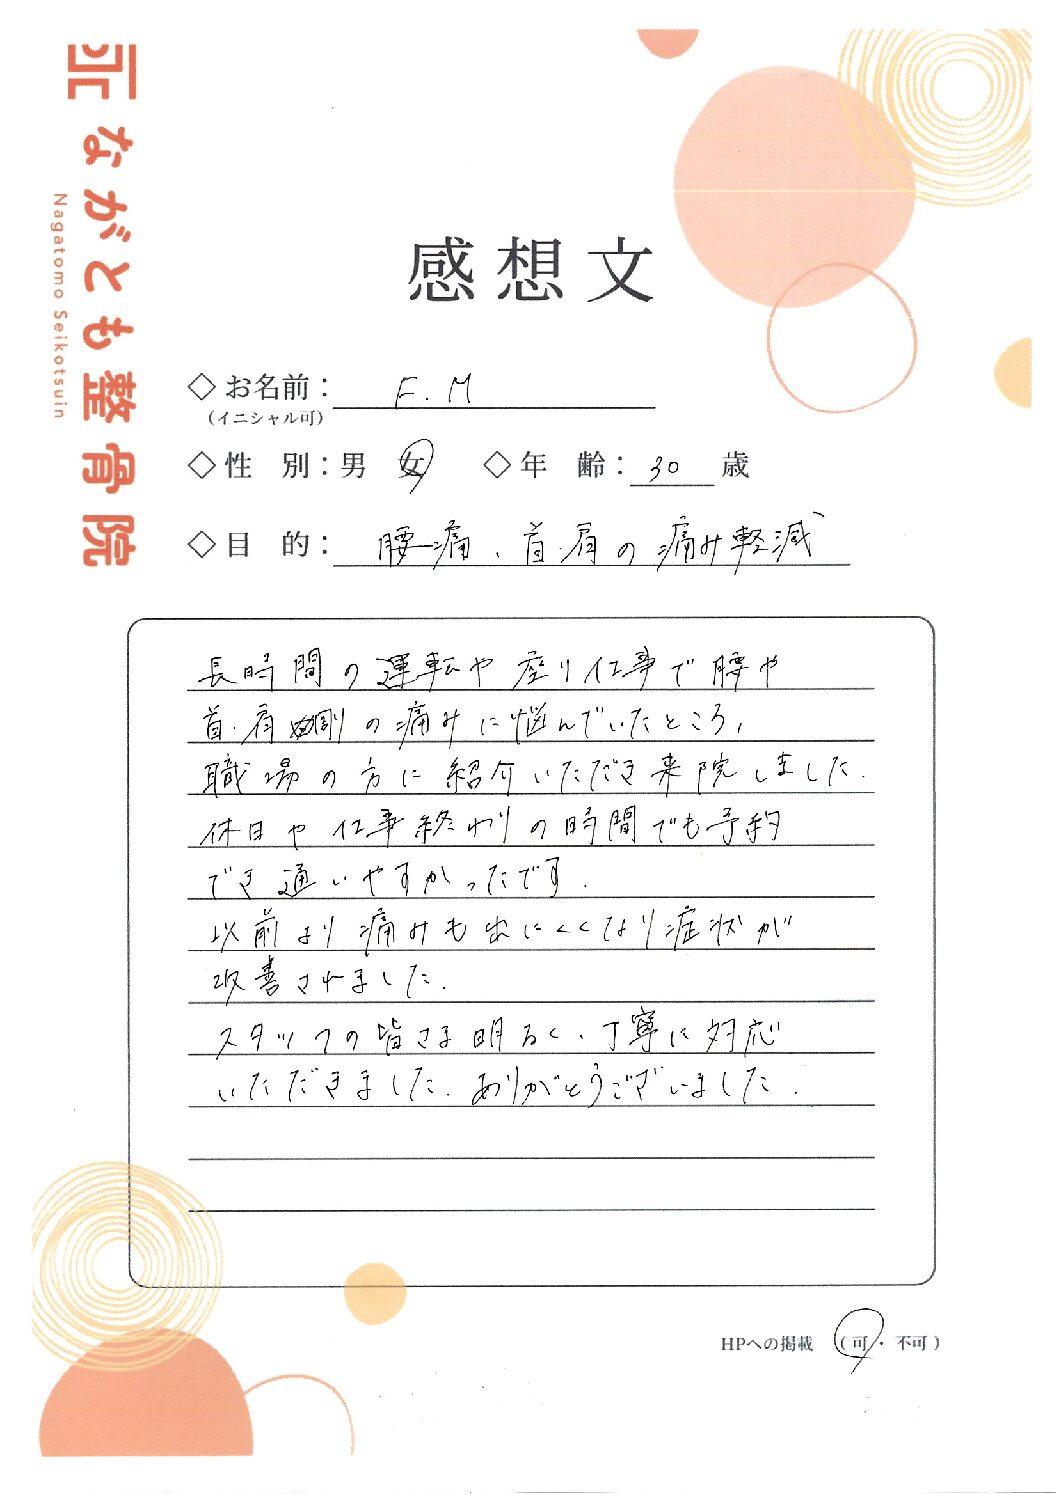 ながとも整骨院
Nagatomo Seikotsuin
感想文
◇お名前： F.M
（イニシャル可）
◇性 別：男 女 ◇年 齢： 30 歳
◇目 的： 腰痛、首・肩の痛み軽減
長時間の運転や座り仕事で腰や
首・肩の痛みに悩んでいたところ、
職場の方に紹介いただき来院しました.
休日や仕事終わりの時間でも予約
でき通いやすかったです.
以前より痛みも出にくくなり症状が
改善されました.
スタッフの皆さま明るく、丁寧に対応
いただきました. ありがとうございました.
HPへの掲載 （可・不可）